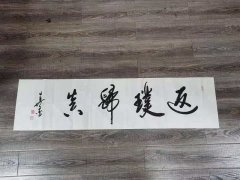 返璞歸真